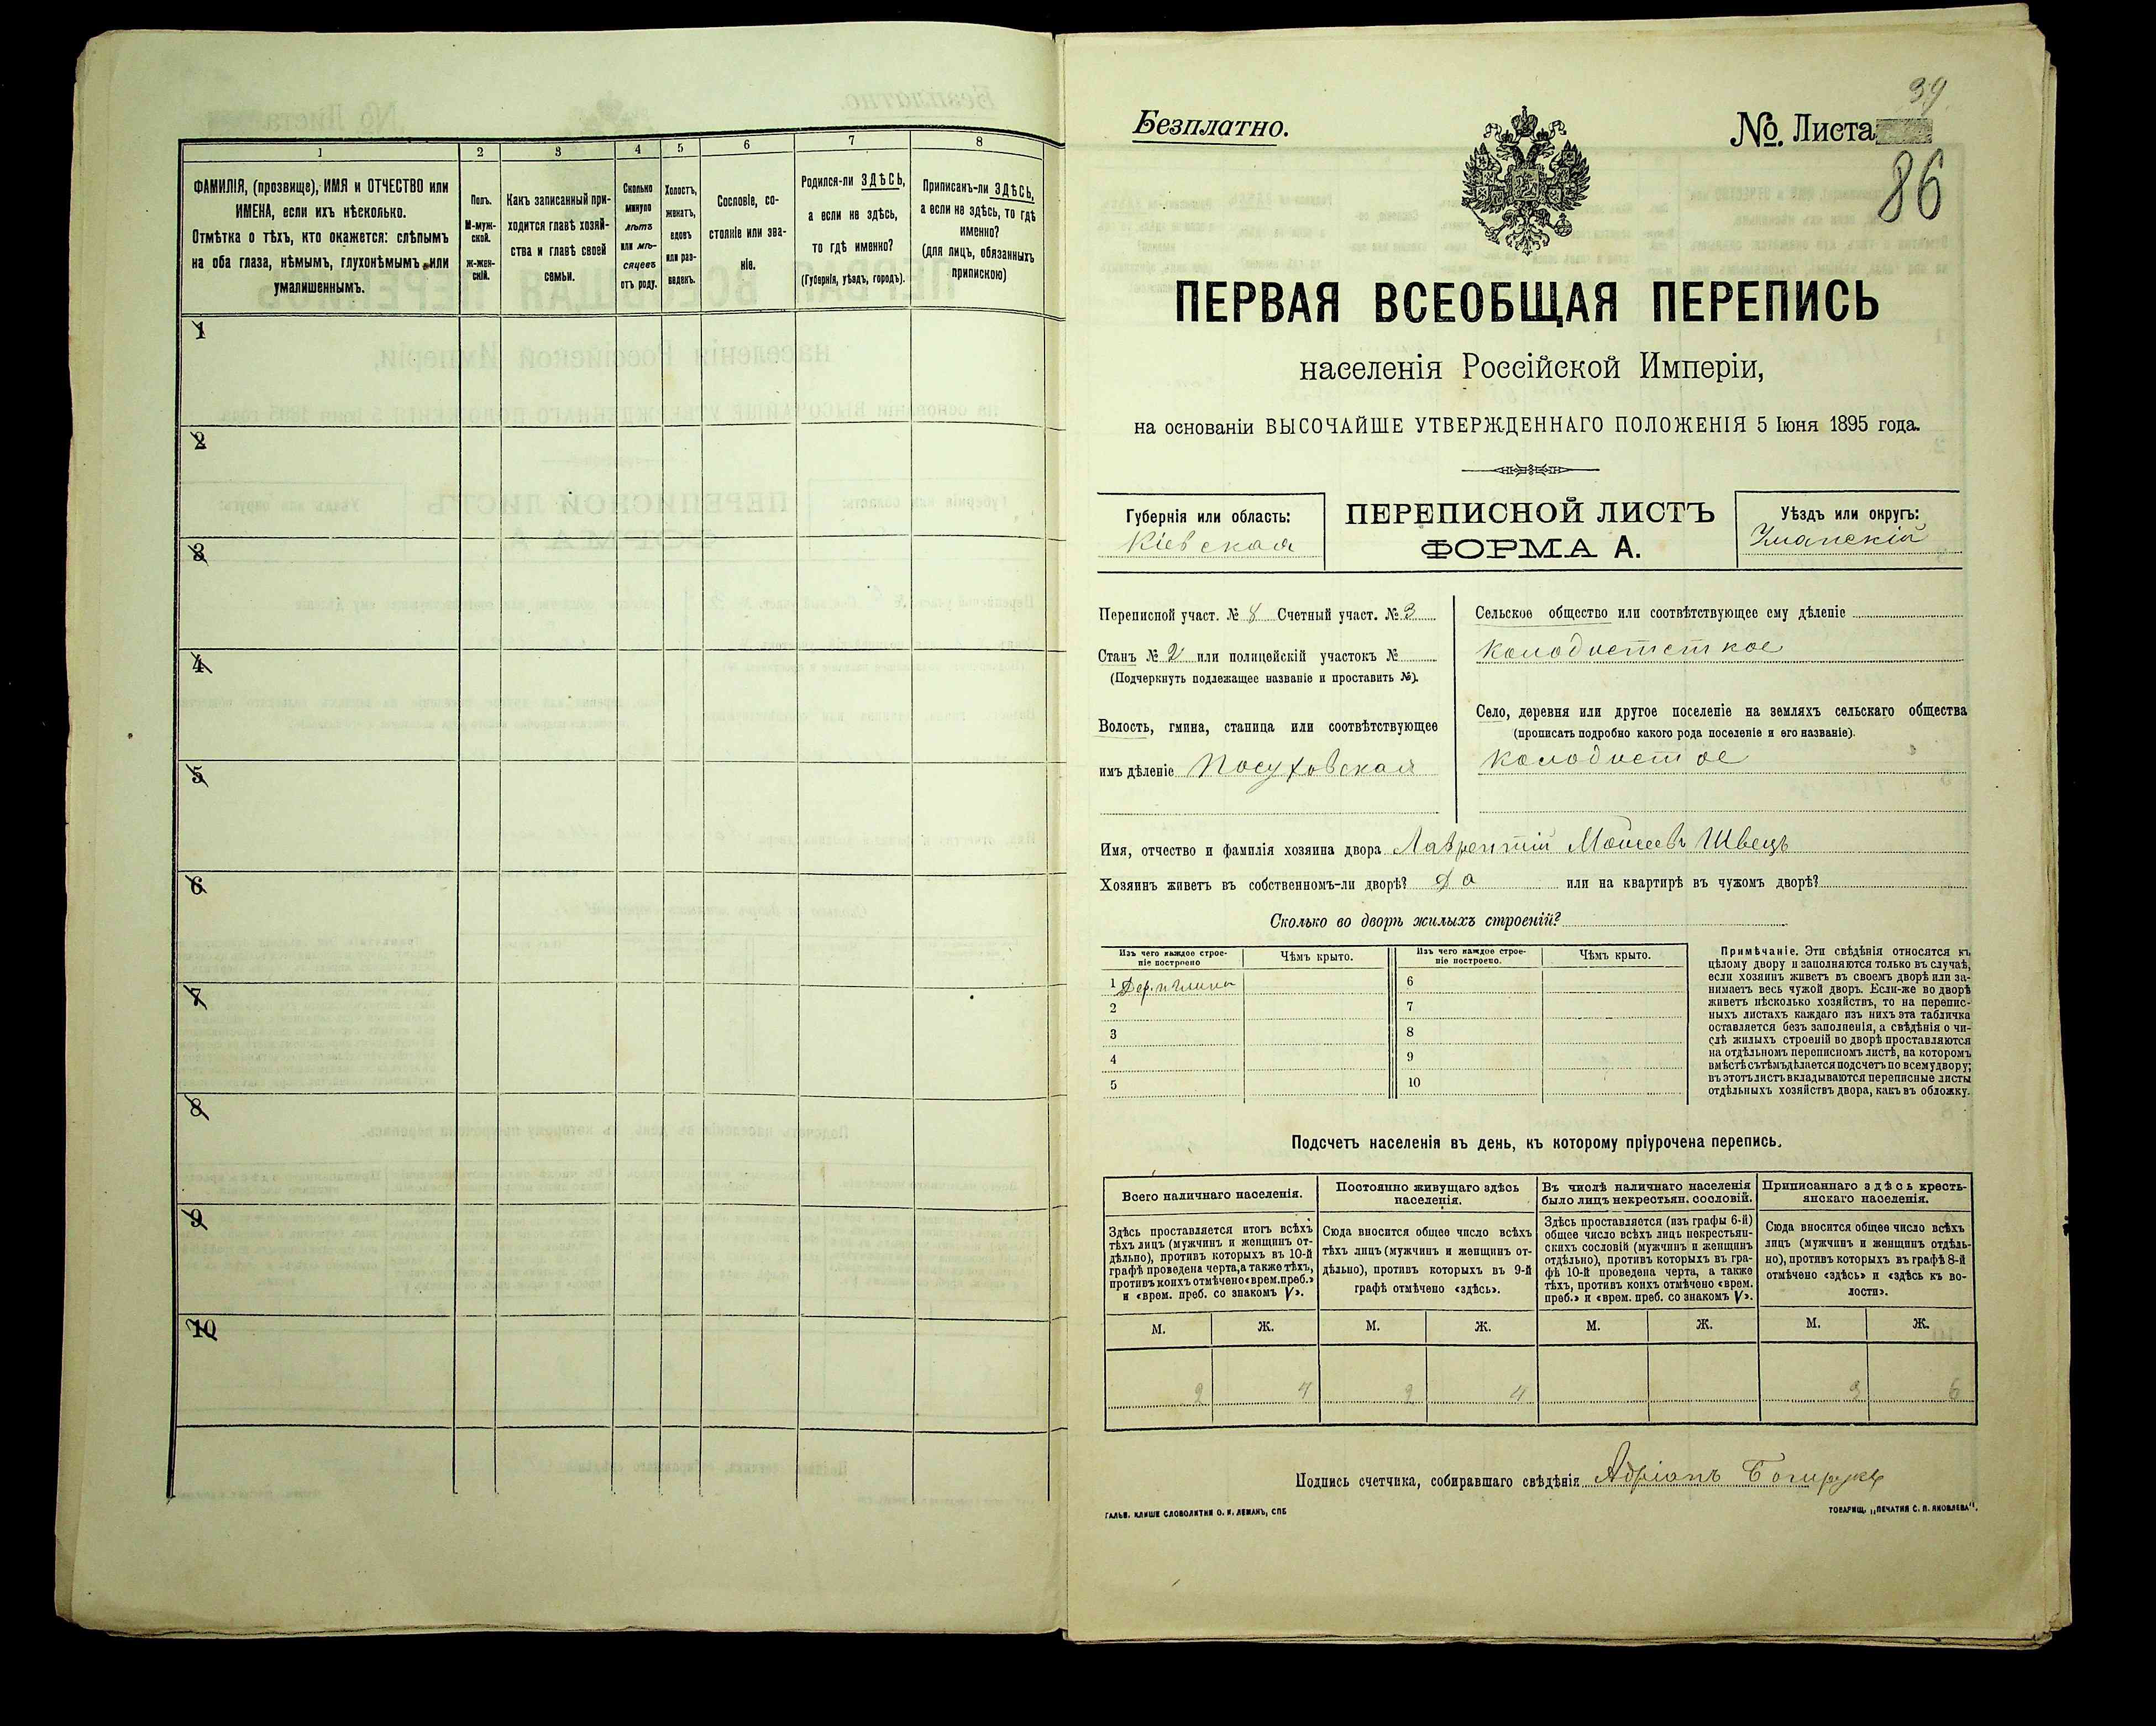 1
2
3
4
5
6
7
8
ФАМИЛІЯ, (прозвище), ИМЯ и ОТЧЕСТВО или
ИМЕНА, если ихъ нѣсколько.
Отмѣтка о тѣхъ, кто окажется: слѣпымъ
на оба глаза, нѣмымъ, глухонѣмымъ или
умалишеннымъ.
Полъ.
М-муж-
ской.
ж-жен-
скій.
Какъ записанный при-
ходится главѣ хозяй-
ства и главѣ своей
семьи.
Сколько
минуло
лѣтъ
или мѣ-
сяцевъ
отъ роду.
Холостъ,
женатъ,
вдовъ
или раз-
веденъ.
Сословіе, со-
стояніе или зва-
ніе.
Родился-ли ЗДѢСЬ,
а если не здѣсь,
то гдѣ именно?
(Губернія, уѣздъ, городъ).
Приписанъ-ли ЗДѢСЬ,
а если не здѣсь, то гдѣ
именно?
(для лицъ, обязанныхъ
припискою)
1
2
3
4
5
6
7
8
9
10
39
Безплатно.
№ Листа
86
ПЕРВАЯ ВСЕОБЩАЯ ПЕРЕПИСЬ
населенія Россійской Имперіи,
на основаніи ВЫСОЧАЙШЕ УТВЕРЖДЕННАГО ПОЛОЖЕНІЯ 5 Іюня 1895 года.
Губернія или область:
Кіевская
ПЕРЕПИСНОЙ ЛИСТЪ
ФОРМА А.
Уѣздъ или округъ:
Уманскій
Переписной участ. № 8 Счетный участ. № 3
Станъ № 2 или полицейскій участокъ №
(Подчеркнуть подлежащее названіе и проставить №).
Волость, гмина, станица или соотвѣтствующее
имъ дѣленіе Посуховская
Сельское общество или соотвѣтствующее ему дѣленіе
Колодистсткое
Село, деревня или другое поселеніе на земляхъ сельскаго общества
(прописать подробно какого рода поселеніе и его названіе).
Колодистое
Имя, отчество и фамилія хозяина двора Лаврентій Моисеевъ Швецъ
Хозяинъ живетъ въ собственномъ-ли дворѣ? Да или на квартирѣ въ чужомъ дворѣ?
Сколько во дворѣ жилыхъ строеній?
Изъ чего каждое строе-
ніе построено
Чѣмъ крыто.
Изъ чего каждое строе-
ніе построено.
Чѣмъ крыто.
1 Дер. и глина
2
3
4
5
6
7
8
9
10
Примѣчаніе. Эти свѣдѣнія относятся къ
цѣлому двору и заполняются только въ случаѣ,
если хозяинъ живетъ въ своемъ дворѣ или за-
нимаетъ весь чужой дворъ. Если-же во дворѣ
живетъ нѣсколько хозяйствъ, то на перепис-
ныхъ листахъ каждаго изъ нихъ эта табличка
оставляется безъ заполненія, а свѣдѣнія о чи-
слѣ жилыхъ строеній во дворѣ проставляются
на отдѣльномъ переписномъ листѣ, на которомъ
вмѣстѣ съ тѣмъ дѣлается подсчетъ по всему двору;
въ этотъ листъ вкладываются переписные листы
отдѣльныхъ хозяйствъ двора, какъ въ обложку.
Подсчетъ населенія въ день, къ которому пріурочена перепись.
Всего наличнаго населенія.
Постоянно живущаго здѣсь
населенія.
Въ числѣ наличнаго населенія
было лицъ некрестьян. сословій.
Приписаннаго здѣсь кресть-
янскаго населенія.
Здѣсь проставляется итогъ всѣхъ
тѣхъ лицъ (мужчинъ и женщинъ от-
дѣльно), противъ которыхъ въ 10-й
графѣ проведена черта, а также тѣхъ,
противъ коихъ отмѣчено «врем. преб.»
и «врем. преб. со знакомъ V».
Сюда вносится общее число всѣхъ
тѣхъ лицъ (мужчинъ и женщинъ от-
дѣльно), противъ которыхъ въ 9-й
графѣ отмѣчено «здѣсь».
Здѣсь проставляется (изъ графы 6-й)
общее число всѣхъ лицъ некрестьян-
скихъ сословій (мужчинъ и женщинъ
отдѣльно), противъ которыхъ въ гра-
фѣ 10-й проведена черта, а также
тѣхъ, противъ коихъ отмѣчено «врем.
преб.» и «врем. преб. со знакомъ V».
Сюда вносится общее число всѣхъ
лицъ (мужчинъ и женщинъ отдѣль-
но), противъ которыхъ въ графѣ 8-й
отмѣчено «здѣсь» и «здѣсь къ во-
лости».
М. Ж. М. Ж. М. Ж. М. Ж.
2 4 2 4 2 6
Подпись счетчика, собиравшаго свѣдѣнія Адріанъ
ГАЛЬВ. КЛИШЕ СЛОВОЛИТНИ О. И. ЛЕМАНЪ, СПБ
ТОВАРИЩ. „ПЕЧАТНЯ С. П. ЯКОВЛЕВА".